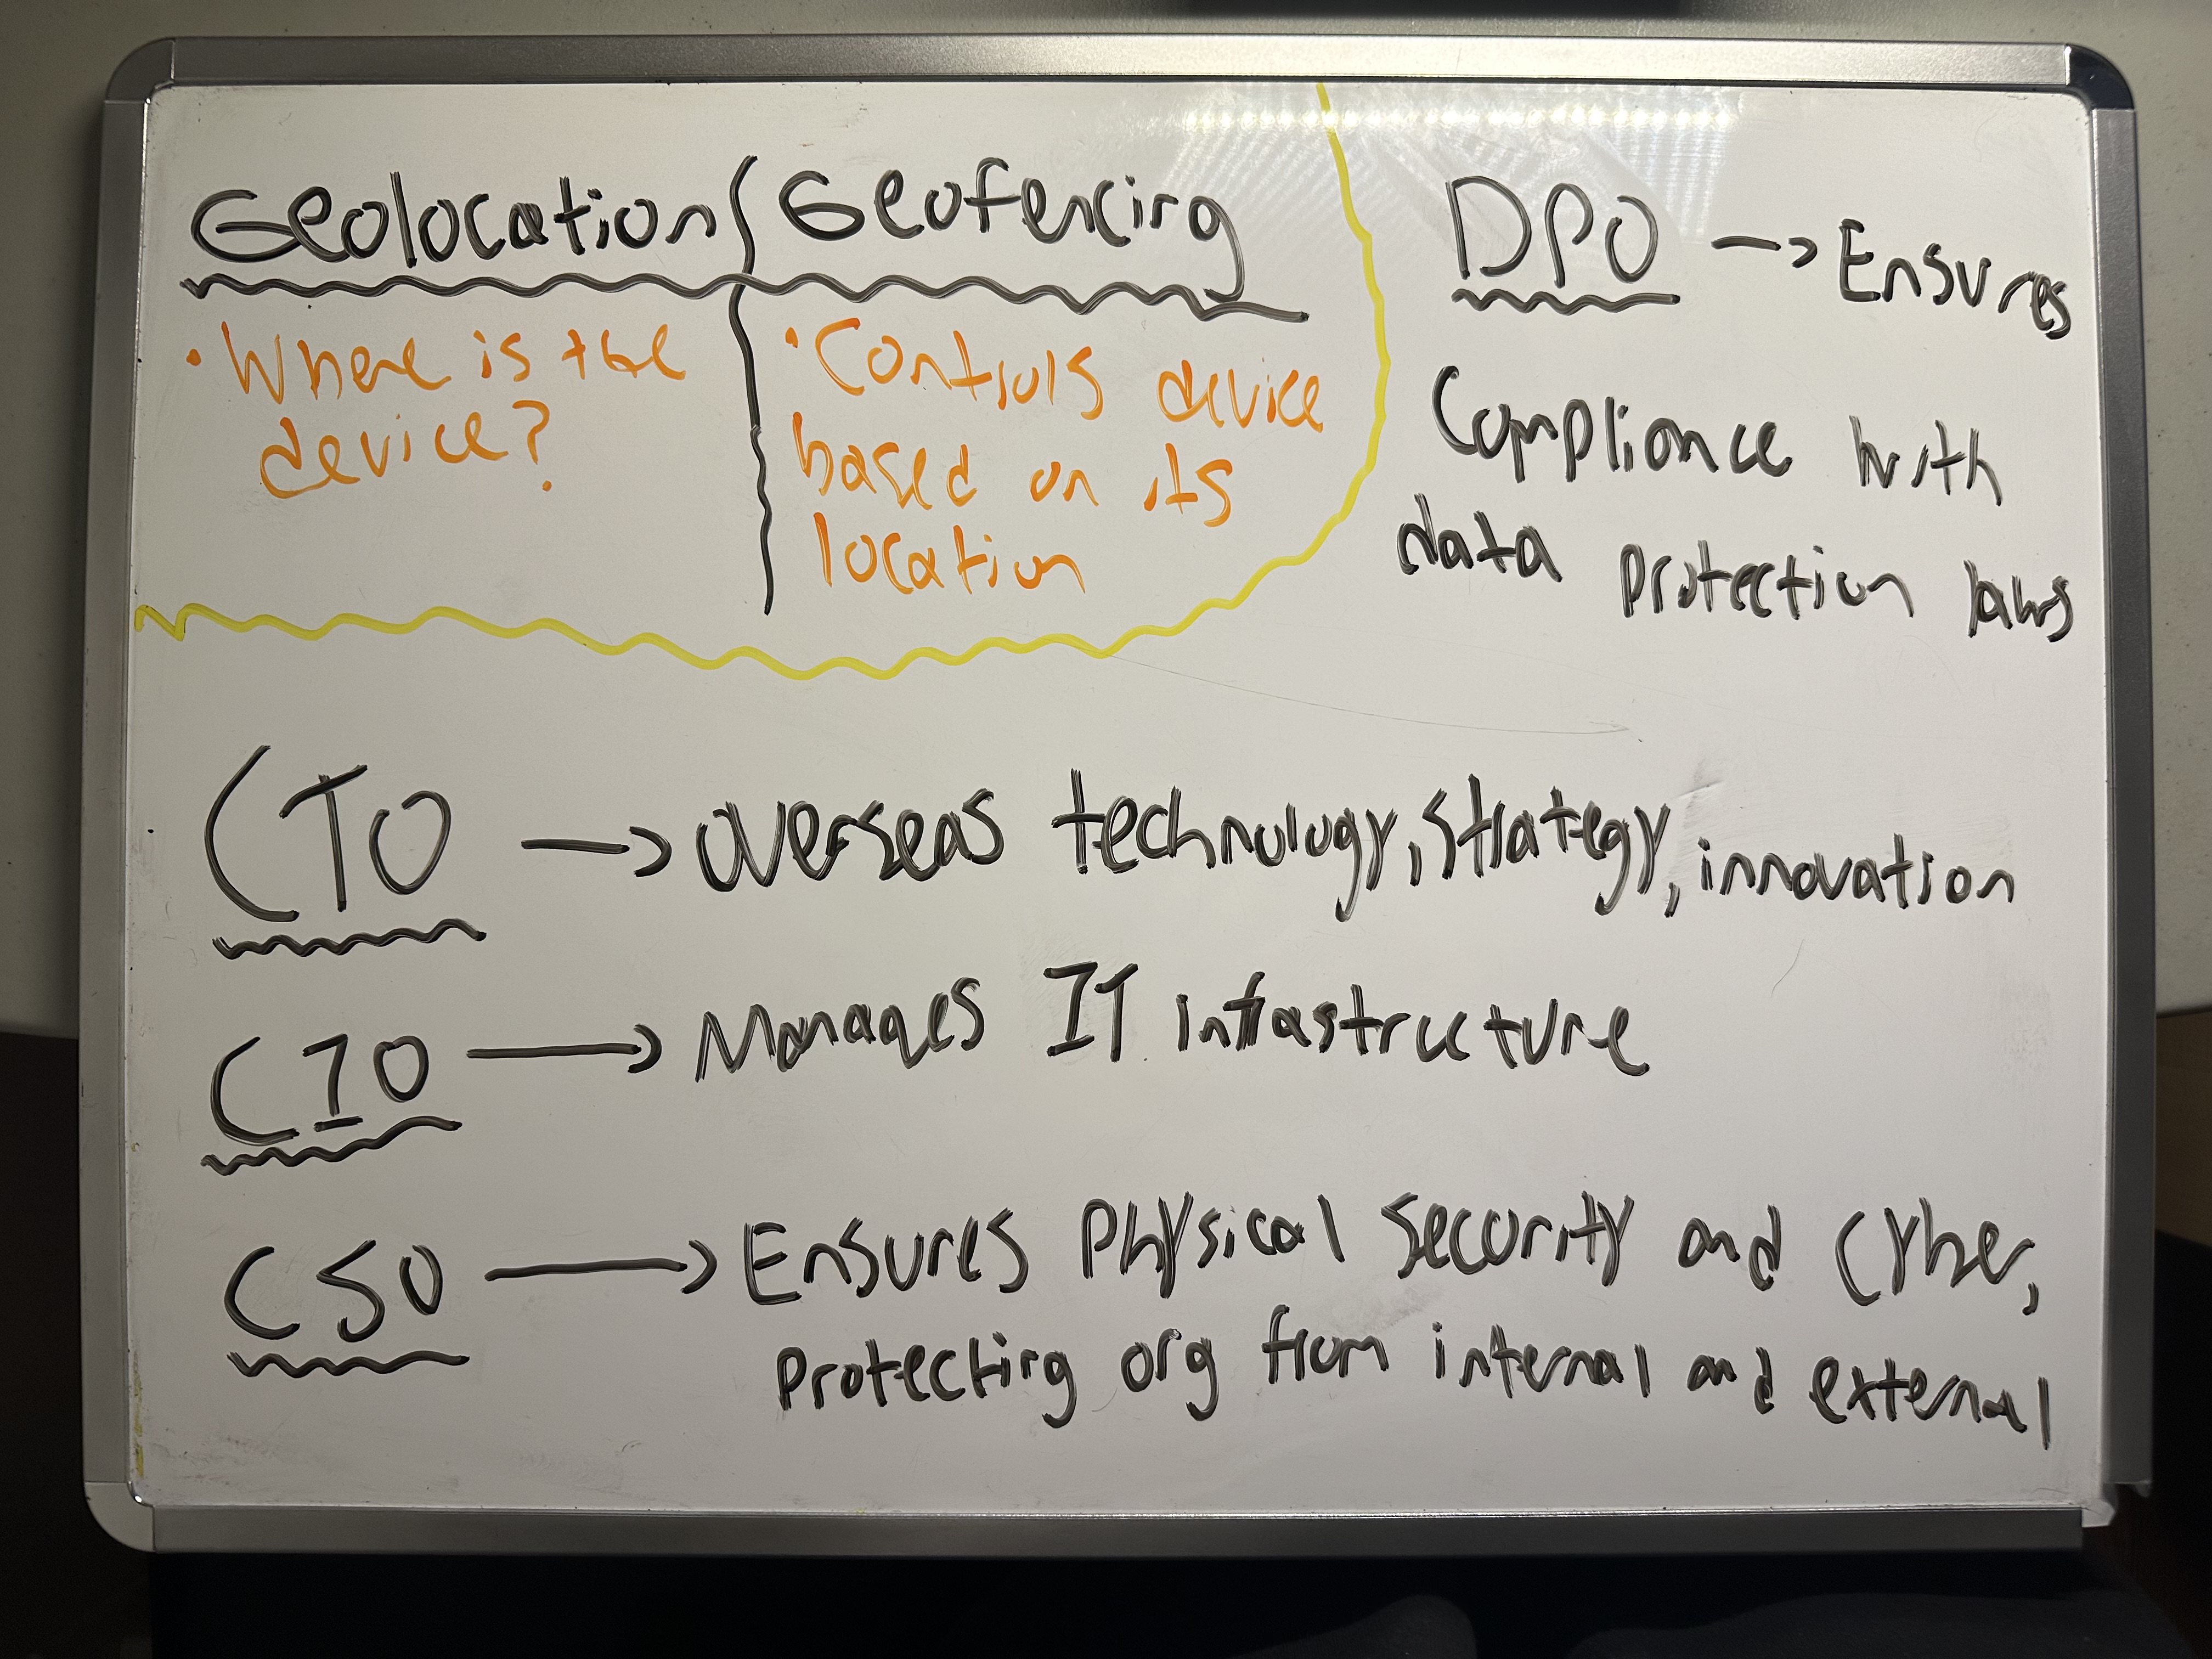 Geolocation
Geofencing
• Where is the
device?
• Controls device
based on its
location
DPO → Ensures
Compliance with
data protection laws
CTO → overseas technology, strategy, innovation
CIO → Manages IT infrastructure
CSO → Ensures physical security and cyber,
protecting org from internal and external